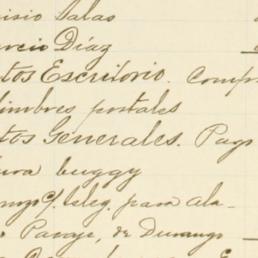 isio Salas
arcio Díaz
tos Escritorio. Comp
timbres postales
tos Generales. Pago
buggy
c/. teleg. para ala-
Pasaje, de Durango